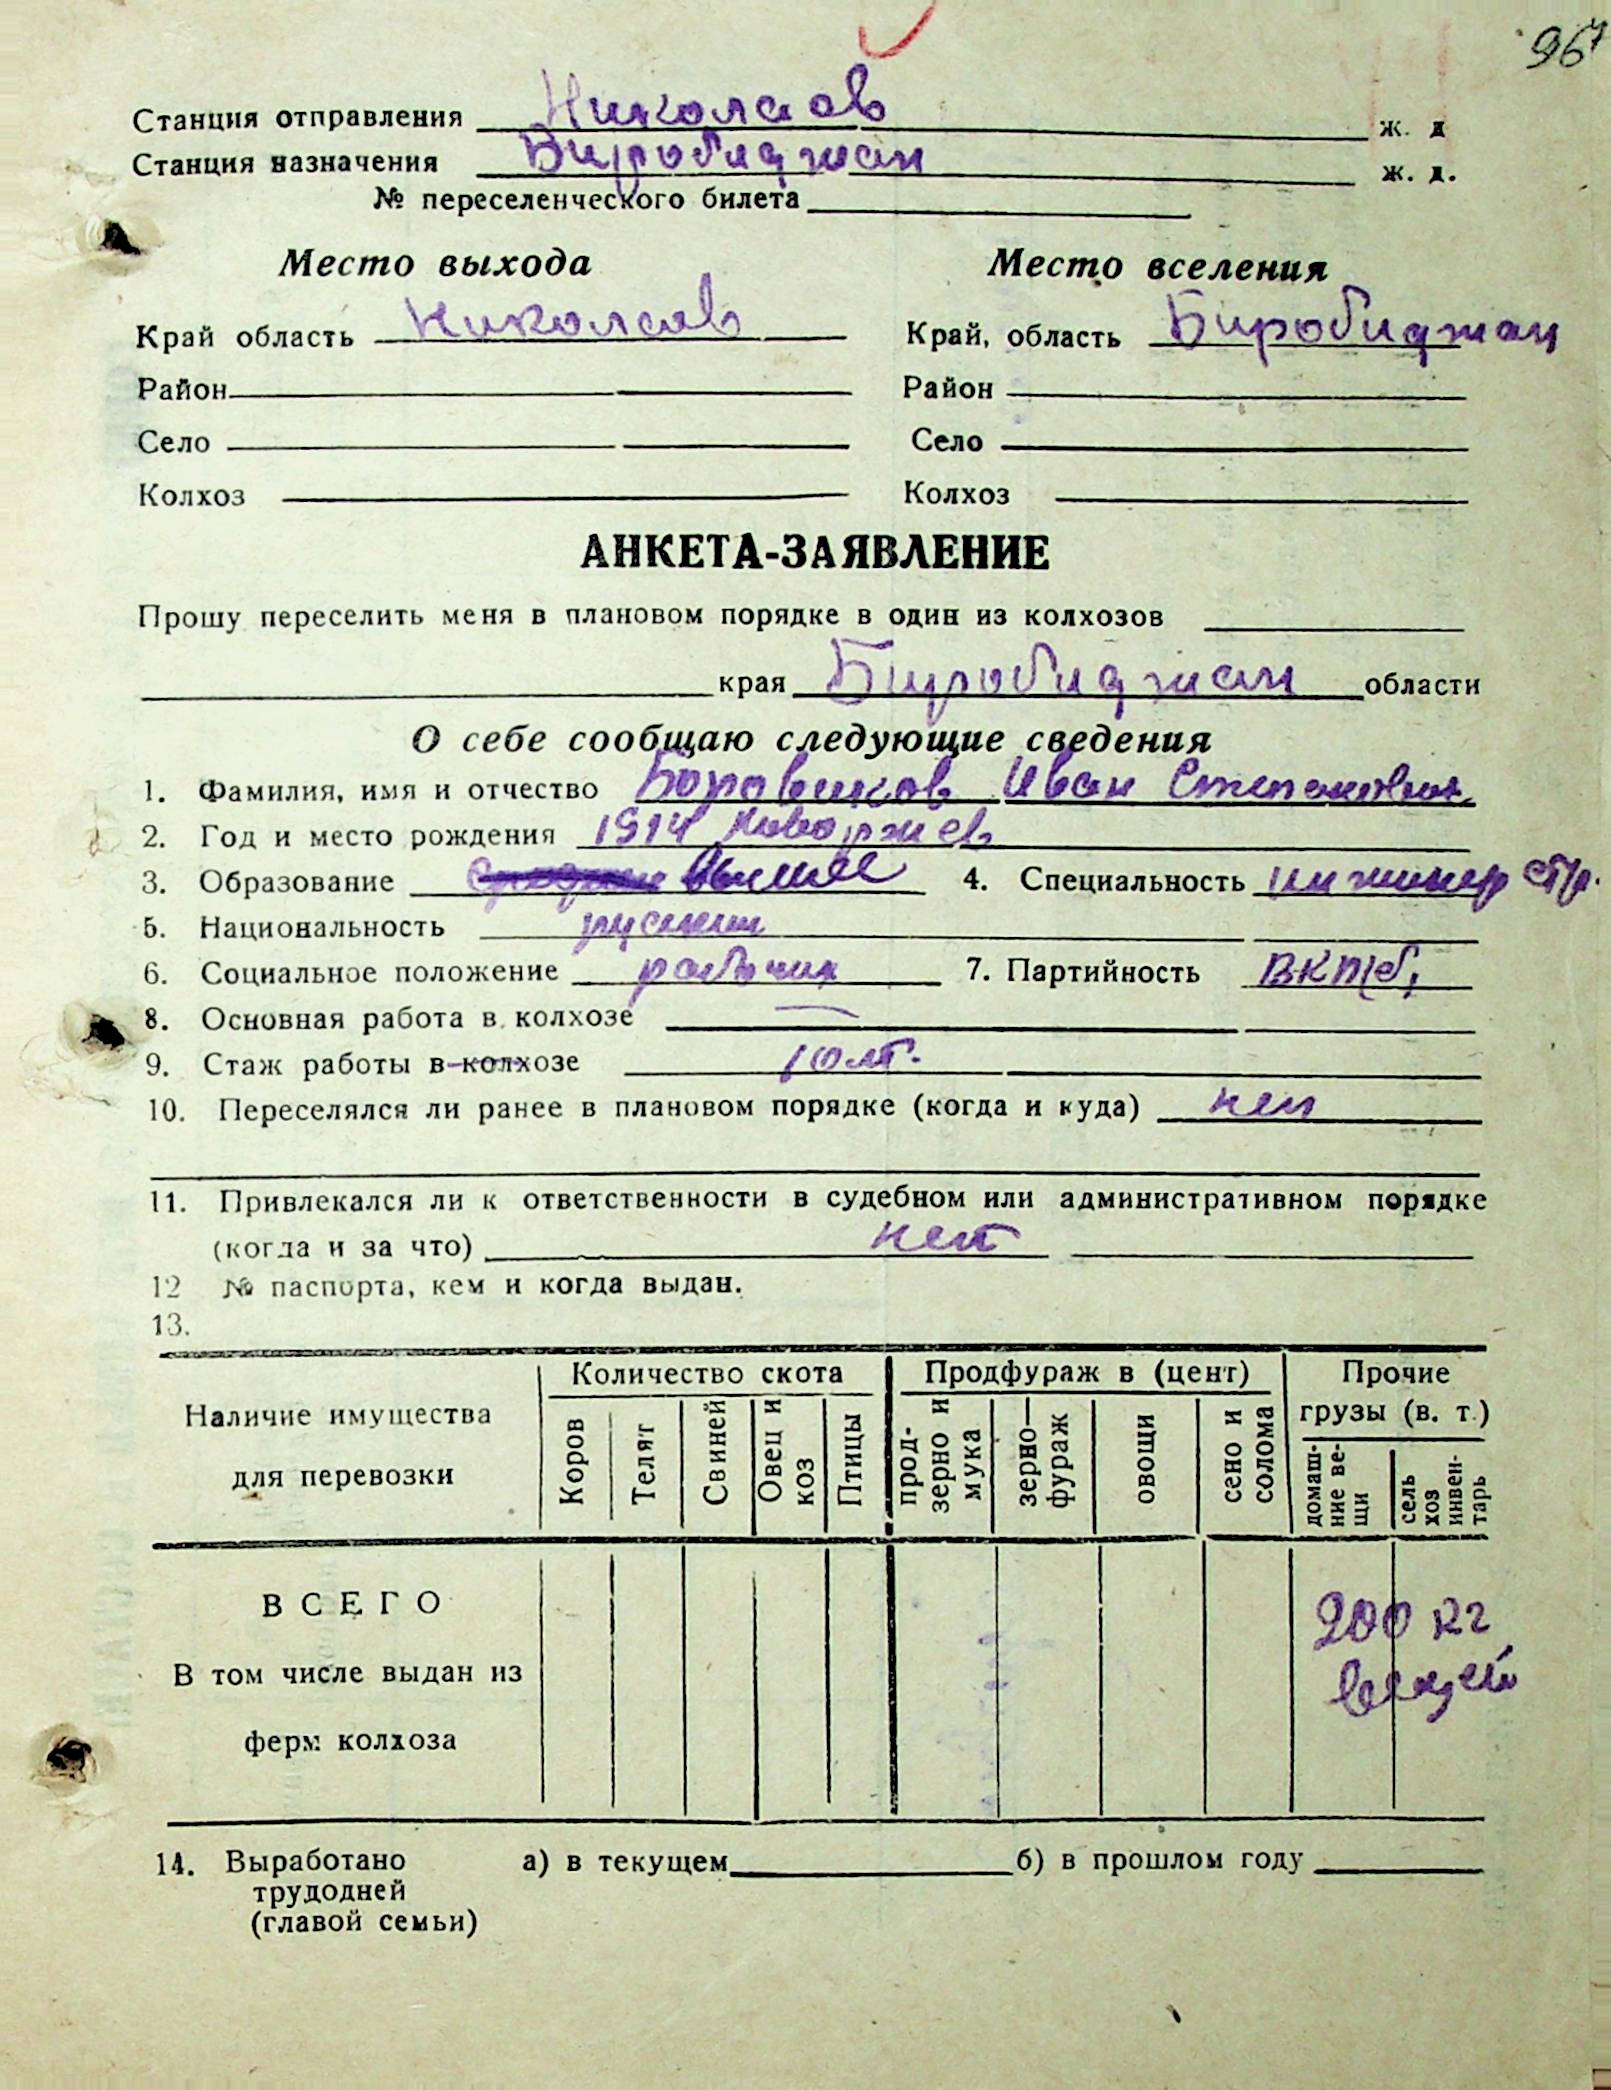 967
Станция отправления Николаев ж. д
Станция назначения Биробиджан ж. д.
№ переселенческого билета
Место выхода Место вселения
Край область Николаев Край, область Биробиджан
Район Район
Село Село
Колхоз Колхоз
АНКЕТА-ЗАЯВЛЕНИЕ
Прошу переселить меня в плановом порядке в один из колхозов
края Биробиджан области
О себе сообщаю следующие сведения
1. Фамилия, имя и отчество Боровиков Иван Степанович
2. Год и место рождения 1914 Новоржев
3. Образование Высшее 4. Специальность инженер стр.
5. Национальность русский
6. Социальное положение рабочий 7. Партийность ВКП(б)
8. Основная работа в колхозе —
9. Стаж работы в колхозе 10 лт.
10. Переселялся ли ранее в плановом порядке (когда и куда) нет
11. Привлекался ли к ответственности в судебном или административном порядке
(когда и за что) нет
12 № паспорта, кем и когда выдан.
13.
Наличие имущества для перевозки
Количество скота Продфураж в (цент) Прочие грузы (в. т.)
Коров Телят Свиней Овец и коз Птицы прод-зерно и мука зерно—фураж овощи сено и солома домаш-ние ве-щи сель хоз инвен-тарь
ВСЕГО 200 кг
В том числе выдан из вещей
ферм колхоза
14. Выработано а) в текущем б) в прошлом году
трудодней
(главой семьи)